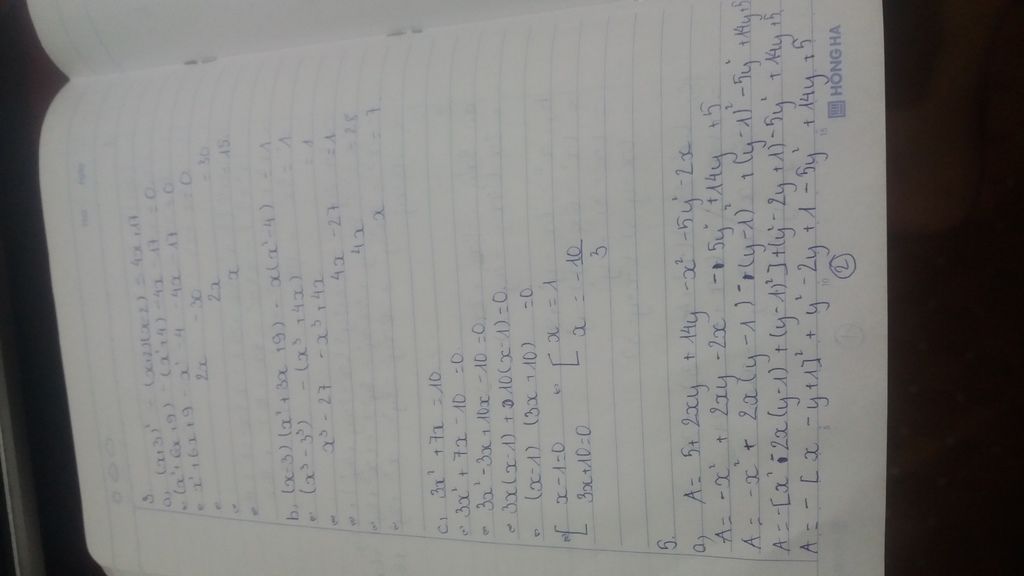 3
a, (x+3)² - (x+2)(x-2) = 4x+17
" (x²+6x+9) - (x²+4) - 4x - 17 = 0
" x²+6x+9 - x² - 4 - 4x - 17 = 0
" 2x - 30 = 30
" 2x
" x = 15
b, (x-3)(x²+3x+9) - x(x²-4) = 1
" (x³-3³) - (x³+4x) = 1
" x³-27 - x³+4x = 1
" 4x - 27 = 1
" 4x = 28
" x = 7
c, 3x²+7x = 10
" 3x²+7x-10 = 0
" 3x²-3x+10x-10 = 0
" 3x(x-1)+10(x-1) = 0
" (x-1)(3x+10) = 0
" [ x-1=0 " [ x = 1
3x+10=0 x = -10/3
5.
a, A = 5+2xy+14y-x²-5y²-2x
A = -x²+2xy-2x-5y²+14y+5
A = -x²+2x(y-1)-(y-1)+(y-1)²-5y²+14y+5
A = -[x²-2x(y-1)+(y-1)²]+(y²-2y+1)-5y²+14y+5
A = -[x-y+1]²+y²-2y+1-5y²+14y+5
2
HONG HA